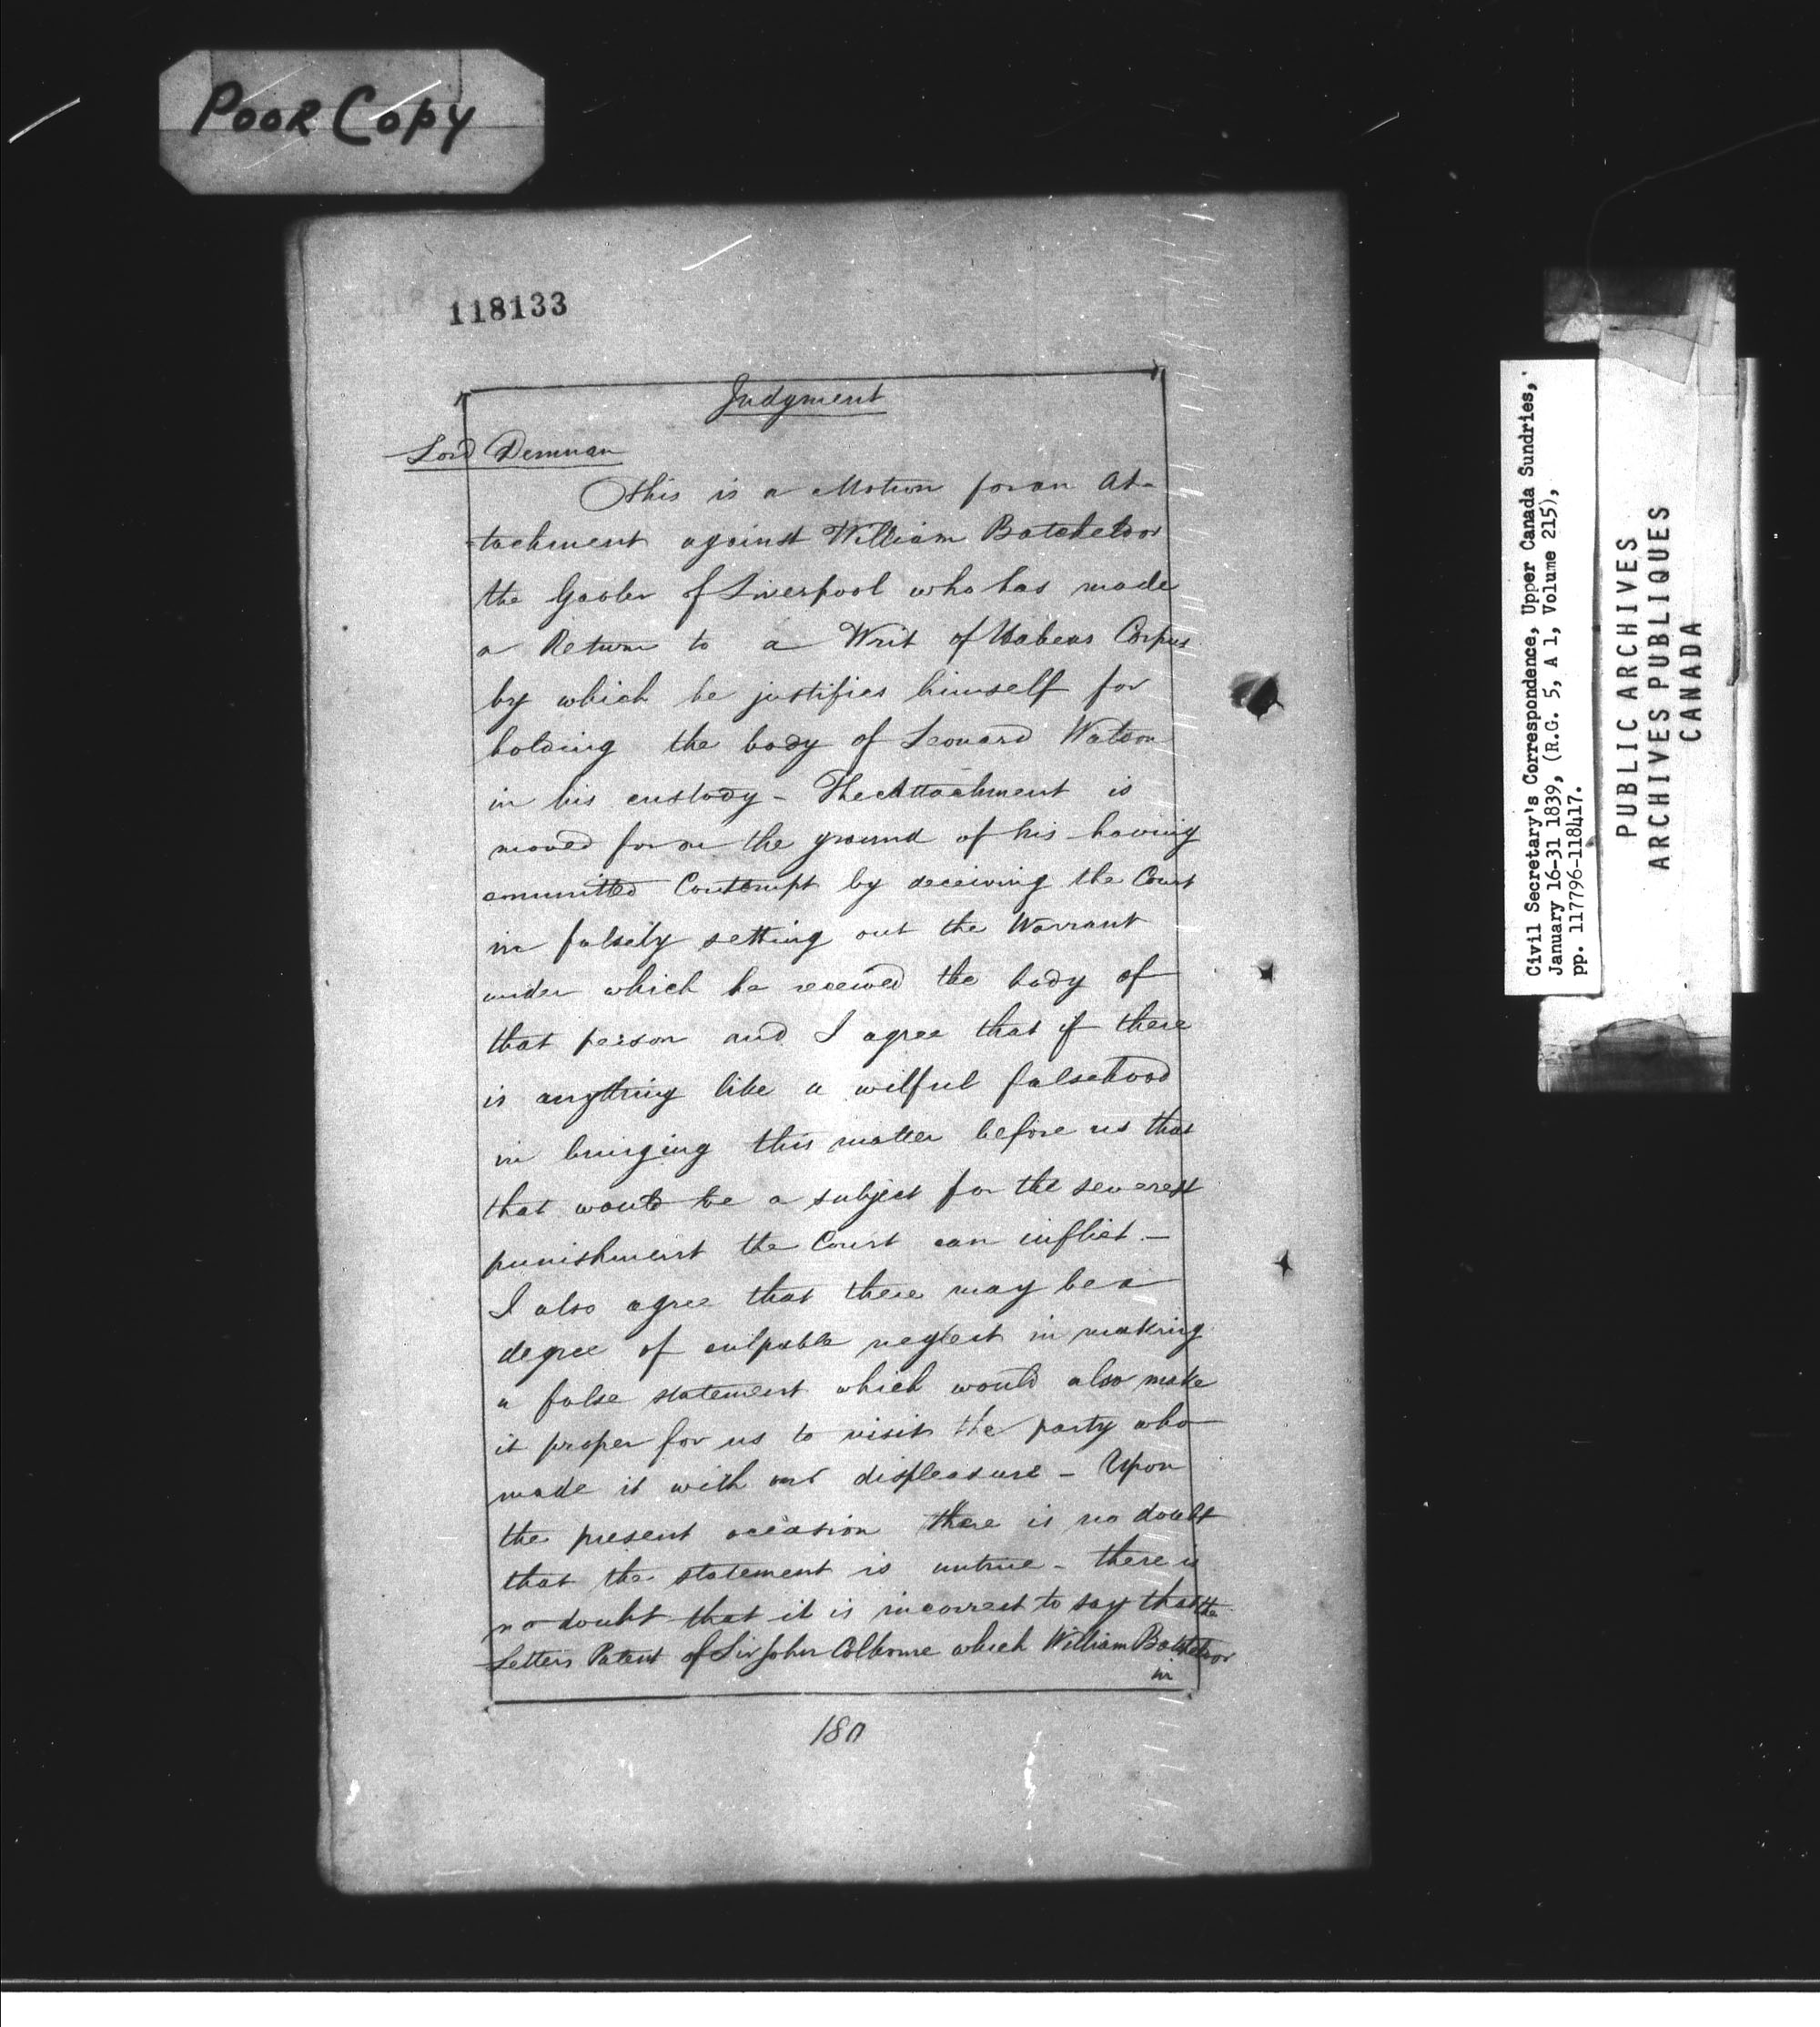 Poor Copy
118133
Judgment
Lord Denman
This is a Motion for an At-
-tachment against William Batcheldor
the Gaoler of Liverpool who has made
a Return to a Writ of Habeas Corpus
by which he justifies himself for
holding the body of Leonard Watson
in his custody - The Attachment is
moved for on the ground of his having
committed Contempt by deceiving the Court
in falsely setting out the Warrant
under which he received the body of
that person and I agree that if there
is anything like a wilful falsehood
in bringing this matter before us that
that would be a subject for the severest
punishment the Court can inflict. -
I also agree that there may be a
degree of culpable neglect in making
a false statement which would also make
it proper for us to visit the party who
made it with our displeasure - Upon
the present occasion there is no doubt
that the statement is untrue - there is
no doubt that it is incorrect to say that the
Letters Patent of Sir John Colborne which William Batcheldor
in
180
Civil Secretary's Correspondence, Upper Canada Sundries,
January 16-31 1839, (R.G. 5, A 1, Volume 215),
pp. 117796-118417.
PUBLIC ARCHIVES
ARCHIVES PUBLIQUES
CANADA